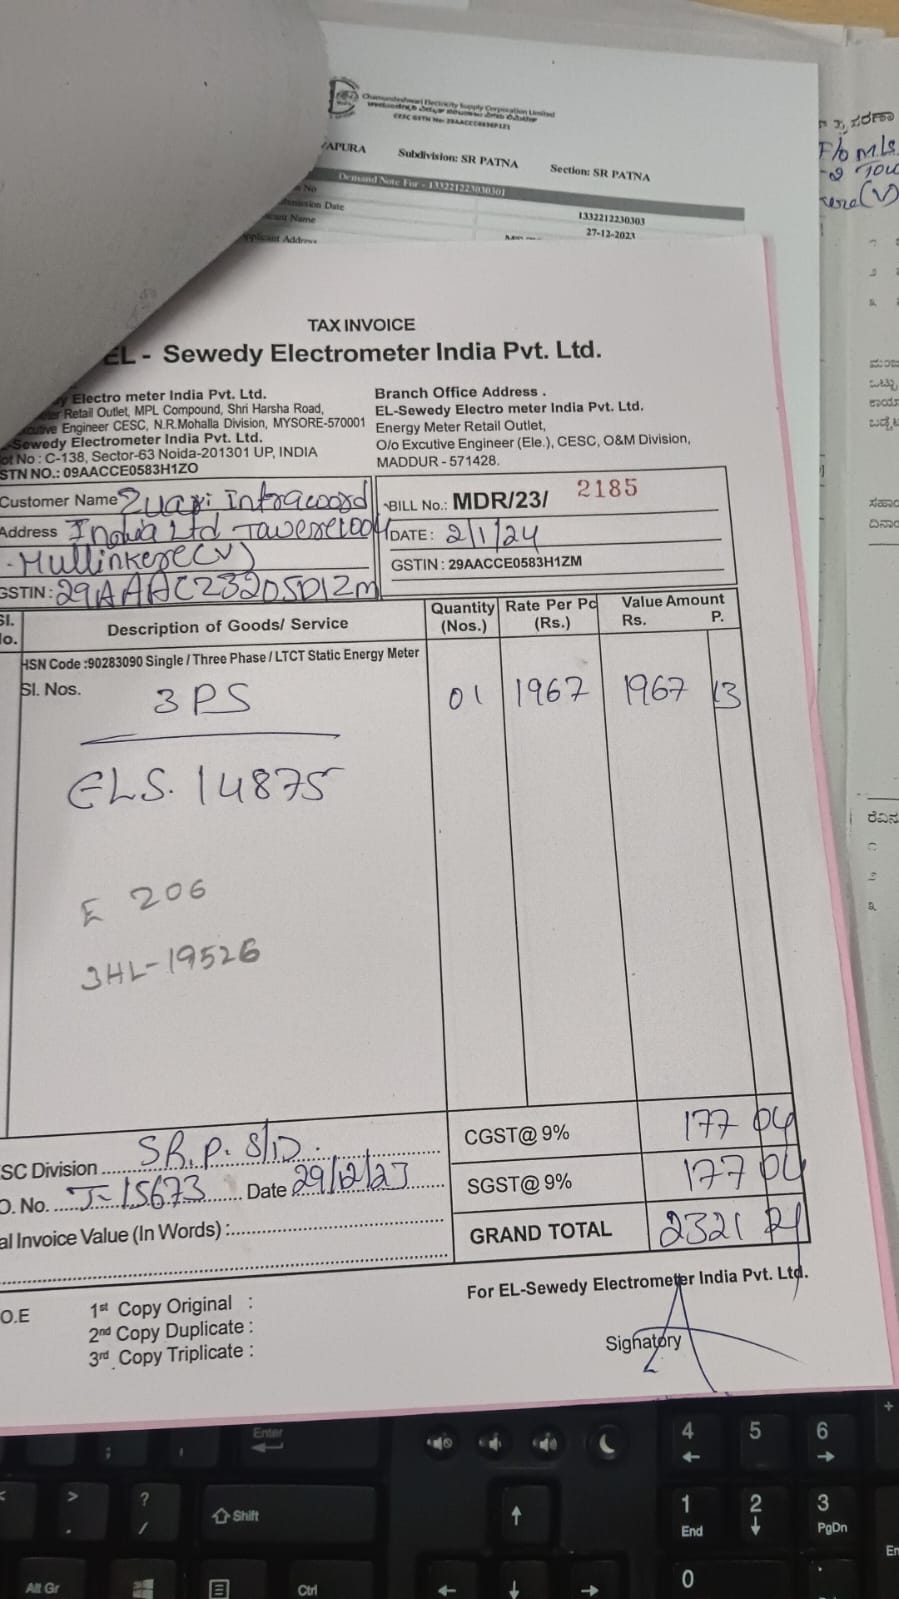 Chamundeshwari Electricity Supply Corporation Limited
CESC GSTN No:
Subdivision: SR PATNA
Section: SR PATNA
Demand Note For - 13322122303030
No
1332212230303
Date
27-12-2023
Name
Applicant Address
F/o M/s
TAX INVOICE
EL - Sewedy Electrometer India Pvt. Ltd.
Electro meter India Pvt. Ltd.
Retail Outlet, MPL Compound, Shri Harsha Road,
Engineer CESC, N.R.Mohalla Division, MYSORE-570001
Sewedy Electrometer India Pvt. Ltd.
No : C-138, Sector-63 Noida-201301 UP, INDIA
STN NO.: 09AACCE0583H1ZO
Branch Office Address .
EL-Sewedy Electro meter India Pvt. Ltd.
Energy Meter Retail Outlet,
O/o Excutive Engineer (Ele.), CESC, O&M Division,
MADDUR - 571428.
Customer Name Zuari Infraworld
Address India Ltd
Mullinkere (V)
GSTIN : 29AAACZ3205D1Zm
BILL No.: MDR/23/ 2185
DATE : 2/1/24
GSTIN : 29AACCE0583H1ZM
Sl. No. Description of Goods/ Service Quantity (Nos.) Rate Per Pc (Rs.) Value Amount Rs. P.
HSN Code :90283090 Single / Three Phase / LTCT Static Energy Meter
Sl. Nos. 3 PS 01 1967 1967 13
ELS. 14875
E 206
3HL-19526
SC Division SR. P. S/D.
O. No. J-15673 Date 29/12/23
al Invoice Value (In Words) :
CGST@ 9% 177 04
SGST@ 9% 177 04
GRAND TOTAL 2321 21
O.E
1st Copy Original :
2nd Copy Duplicate :
3rd Copy Triplicate :
For EL-Sewedy Electrometer India Pvt. Ltd.
Signatory
Enter
4 5 6
? /
Shift
1 End 2 3 PgDn
Alt Gr Ctrl 0